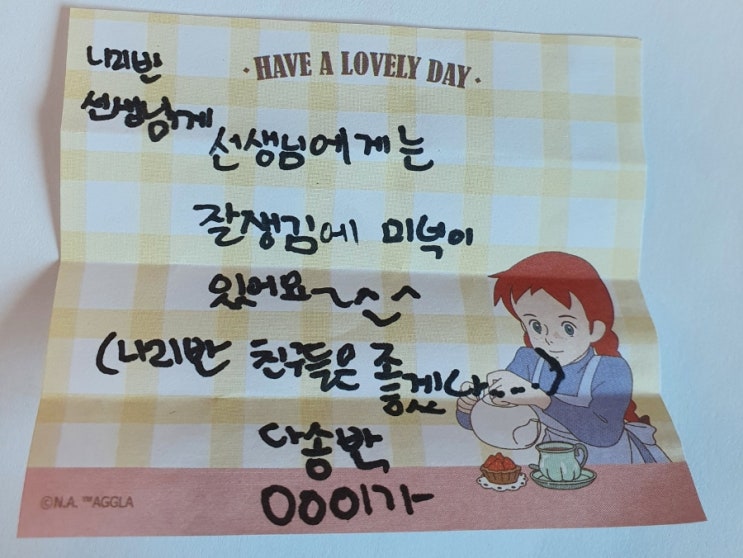 · HAVE A LOVELY DAY ·
나리반
선생님께
선생님에게는
잘생김에 미덕이
있어요~^^
(나리반 친구들은 좋겠다...)
다송반
OOO이가
©N.A. ™AGGLA